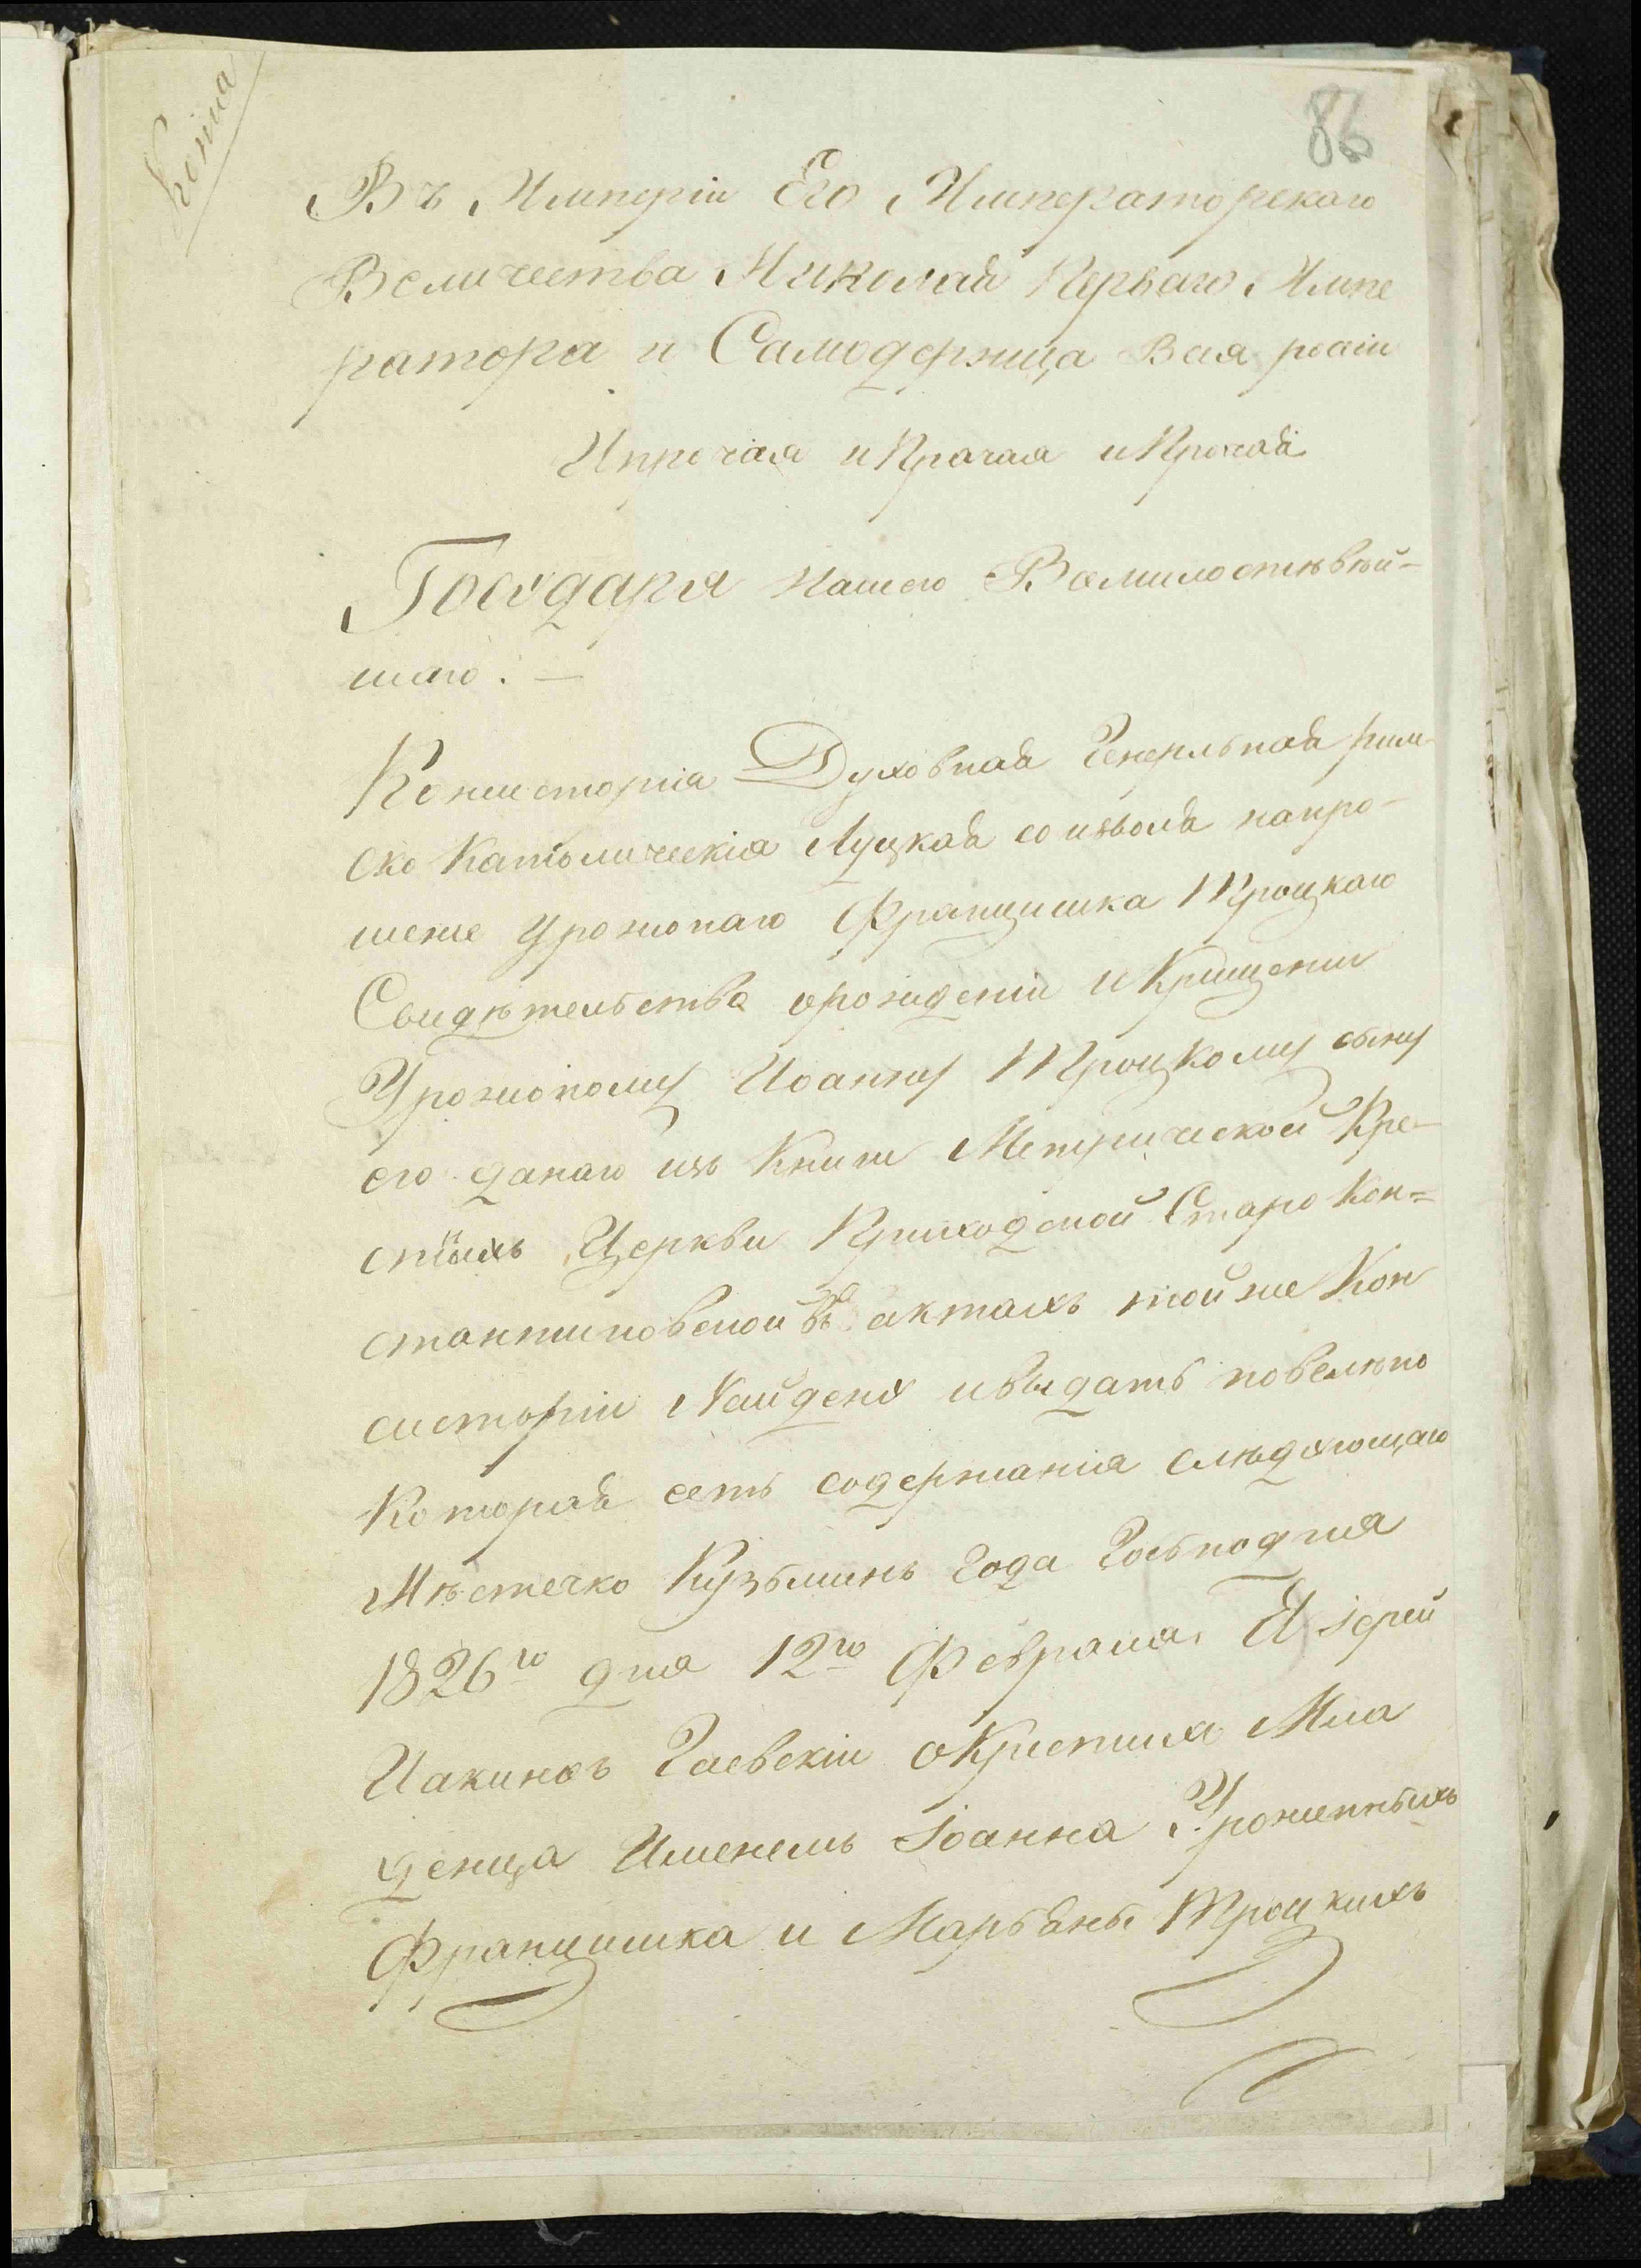 Копиа
86
Въ Имперіи Его Императорскаго
Величества Николая Перваго Импе
ратора и Самодержца Всея росіи
Ипрочая иПрочая иПрочая
Государя Нашего Всемилостивѣй-
шаго. —
Консисторія Духовная Генеральная рим-
ско Католическія Луцкая соизволя напро-
шение урожонаго Францишка Троцкаго
Свидѣтельства орождении иКрищении
Урожоному Иоанну Троцкому сыну
его данаго изъ Книги Метрической Кре-
стныхъ Церкви Приходской Старо Кон=
стантиновской въ актахъ тойже Кон
систоріи Найдену ивыдать повелѣно
Которая есть содержания слѣдующаго
Мѣстечко Кузьминъ Года Господня
1826го дня 12го Февраля. Я Іерей
Иакинѳъ Гаевскіи окрестилъ Мла
денца Именемъ Іоанна Урожденныхъ
Францишка и Марьяны Троцкихъ